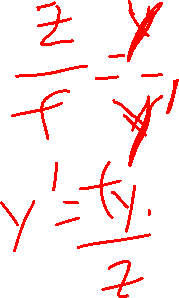 z/f = y/y'
y' = fy/z